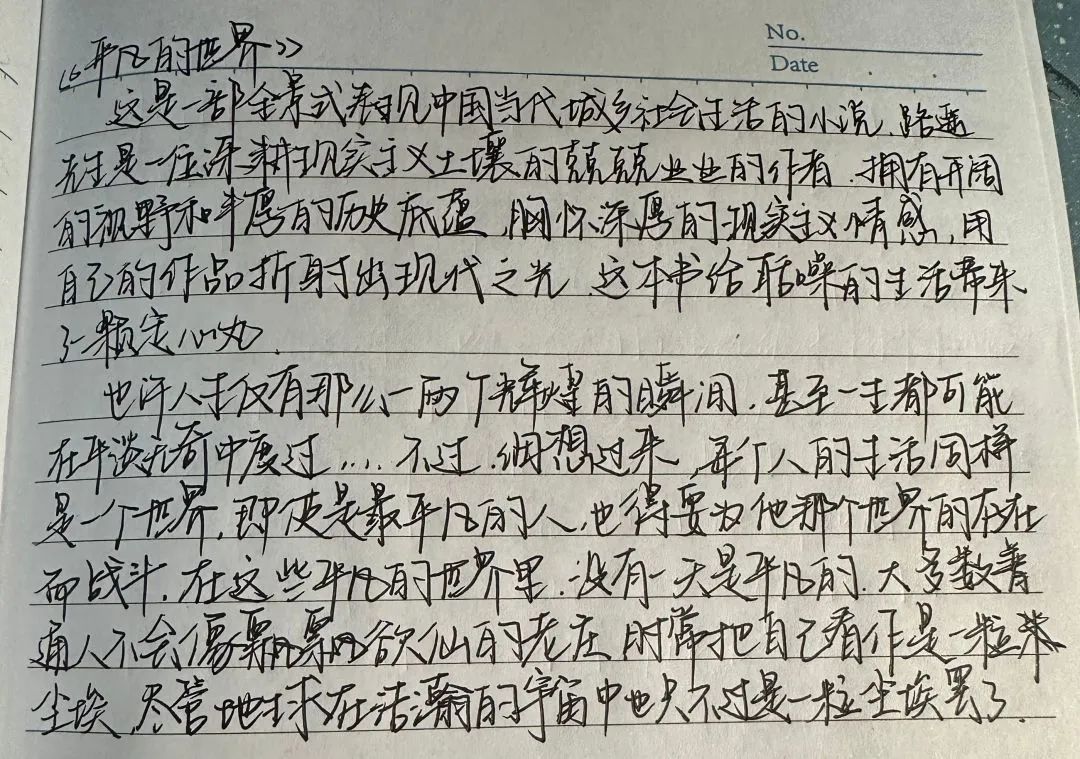 No.
Date
《平凡的世界》
这是一部全景式表现中国当代城乡社会生活的小说,路遥
先生是一位深耕现实主义土壤的兢兢业业的作者,拥有开阔
的视野和丰厚的历史底蕴,胸怀深厚的现实主义情感,用
自己的作品折射出现代之光,这本书给聒噪的生活带来
了一颗定心丸.
也许人生仅有那么一两个辉煌的瞬间,甚至一生都可能
在平淡无奇中度过....不过,细想过来,每个人的生活同样
是一个世界,即使是最平凡的人,也得要为他那个世界的存在
而战斗.在这些平凡的世界里,没有一天是平凡的,大多数普
通人不会像飘飘欲仙的老庄,时常把自己看作是一粒
尘埃,尽管地球在浩瀚的宇宙中也只不过是一粒尘埃罢了.